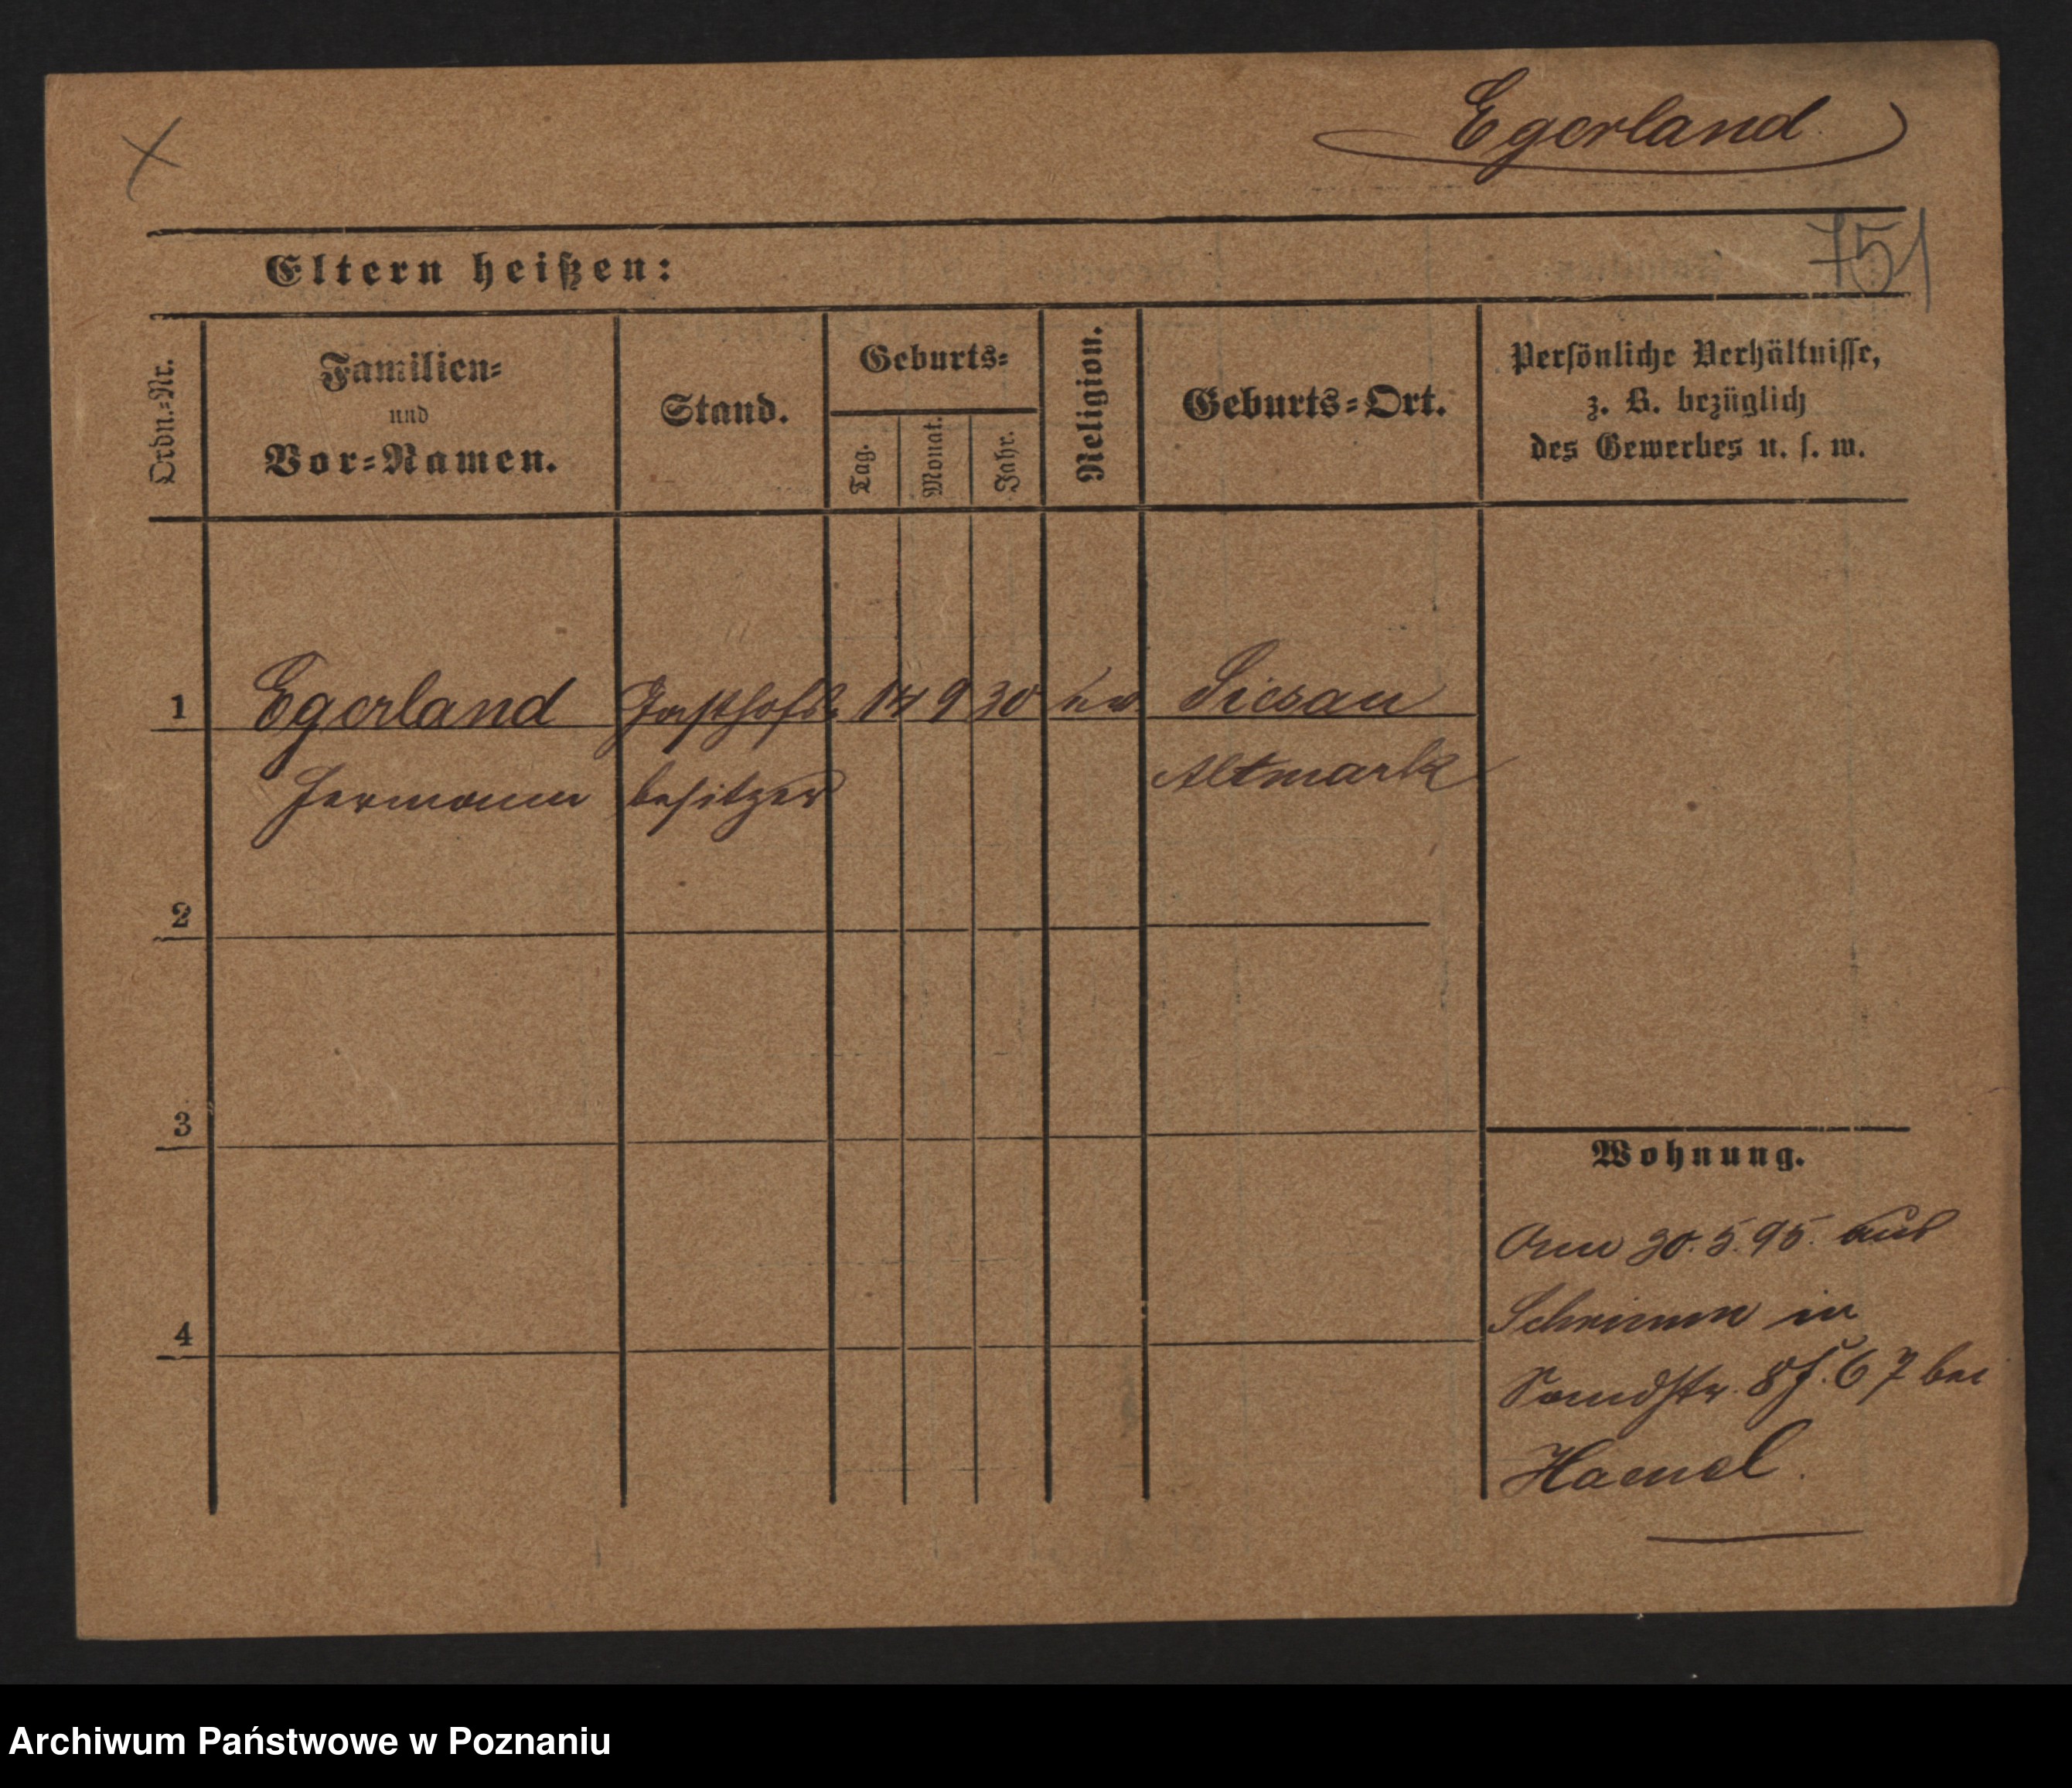 Egerland
751
Eltern heißen:
Ordn.-Nr.
Familien-
und
Vor-Namen.
Stand.
Geburts-
Tag.
Monat.
Jahr.
Religion.
Geburts-Ort.
Persönliche Verhältnisse,
z. B. bezüglich
des Gewerbes u. s. w.
1 Egerland Gasthofs- 14 9 30 ev Siesau
Hermann besitzer Altmark
2
3
4
Wohnung.
Am 30.5.95. aus
Schrimm in
Sandstr. 8 67 bei
Hamel.
Archiwum Państwowe w Poznaniu